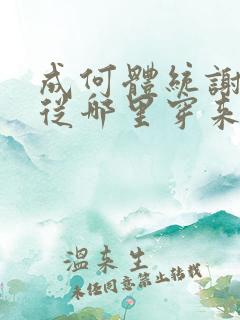 成何體統謝
從哪里穿来
溫来生
未经同意禁止转载